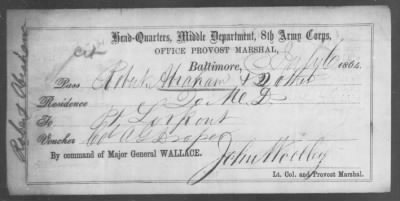 Head-Quarters, Middle Department, 8th Army Corps,
OFFICE PROVOST MARSHAL,
Baltimore, July 6 1864.
Pass Robert Abraham &
Residence
To Pt
Voucher
By command of Major General WALLACE.
John Woolley
Lt. Col. and Provost Marshal.
Robert Abraham